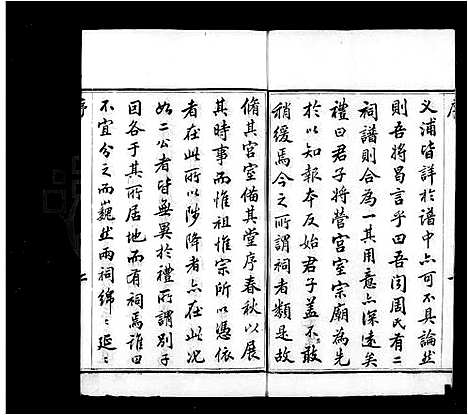 序
義浦皆詳於譜中亦可不具論然
則吾將昌言乎曰吾闻周氏有二
祠譜則合為一其用意亦深遠矣
禮曰君子將營宮室宗廟為先
於以知報本反始君子蓋不敢
稍緩焉今之所謂祠者類是故
脩其宮室備其堂序春秋以展
其時事而惟祖惟宗所以憑依
者在此所以陟降者亦在此况
如二公者皆無異於禮所謂別子
因各于其所居地而有祠焉誰曰
不宜分之而巍然两祠綿〻延〻
序
二